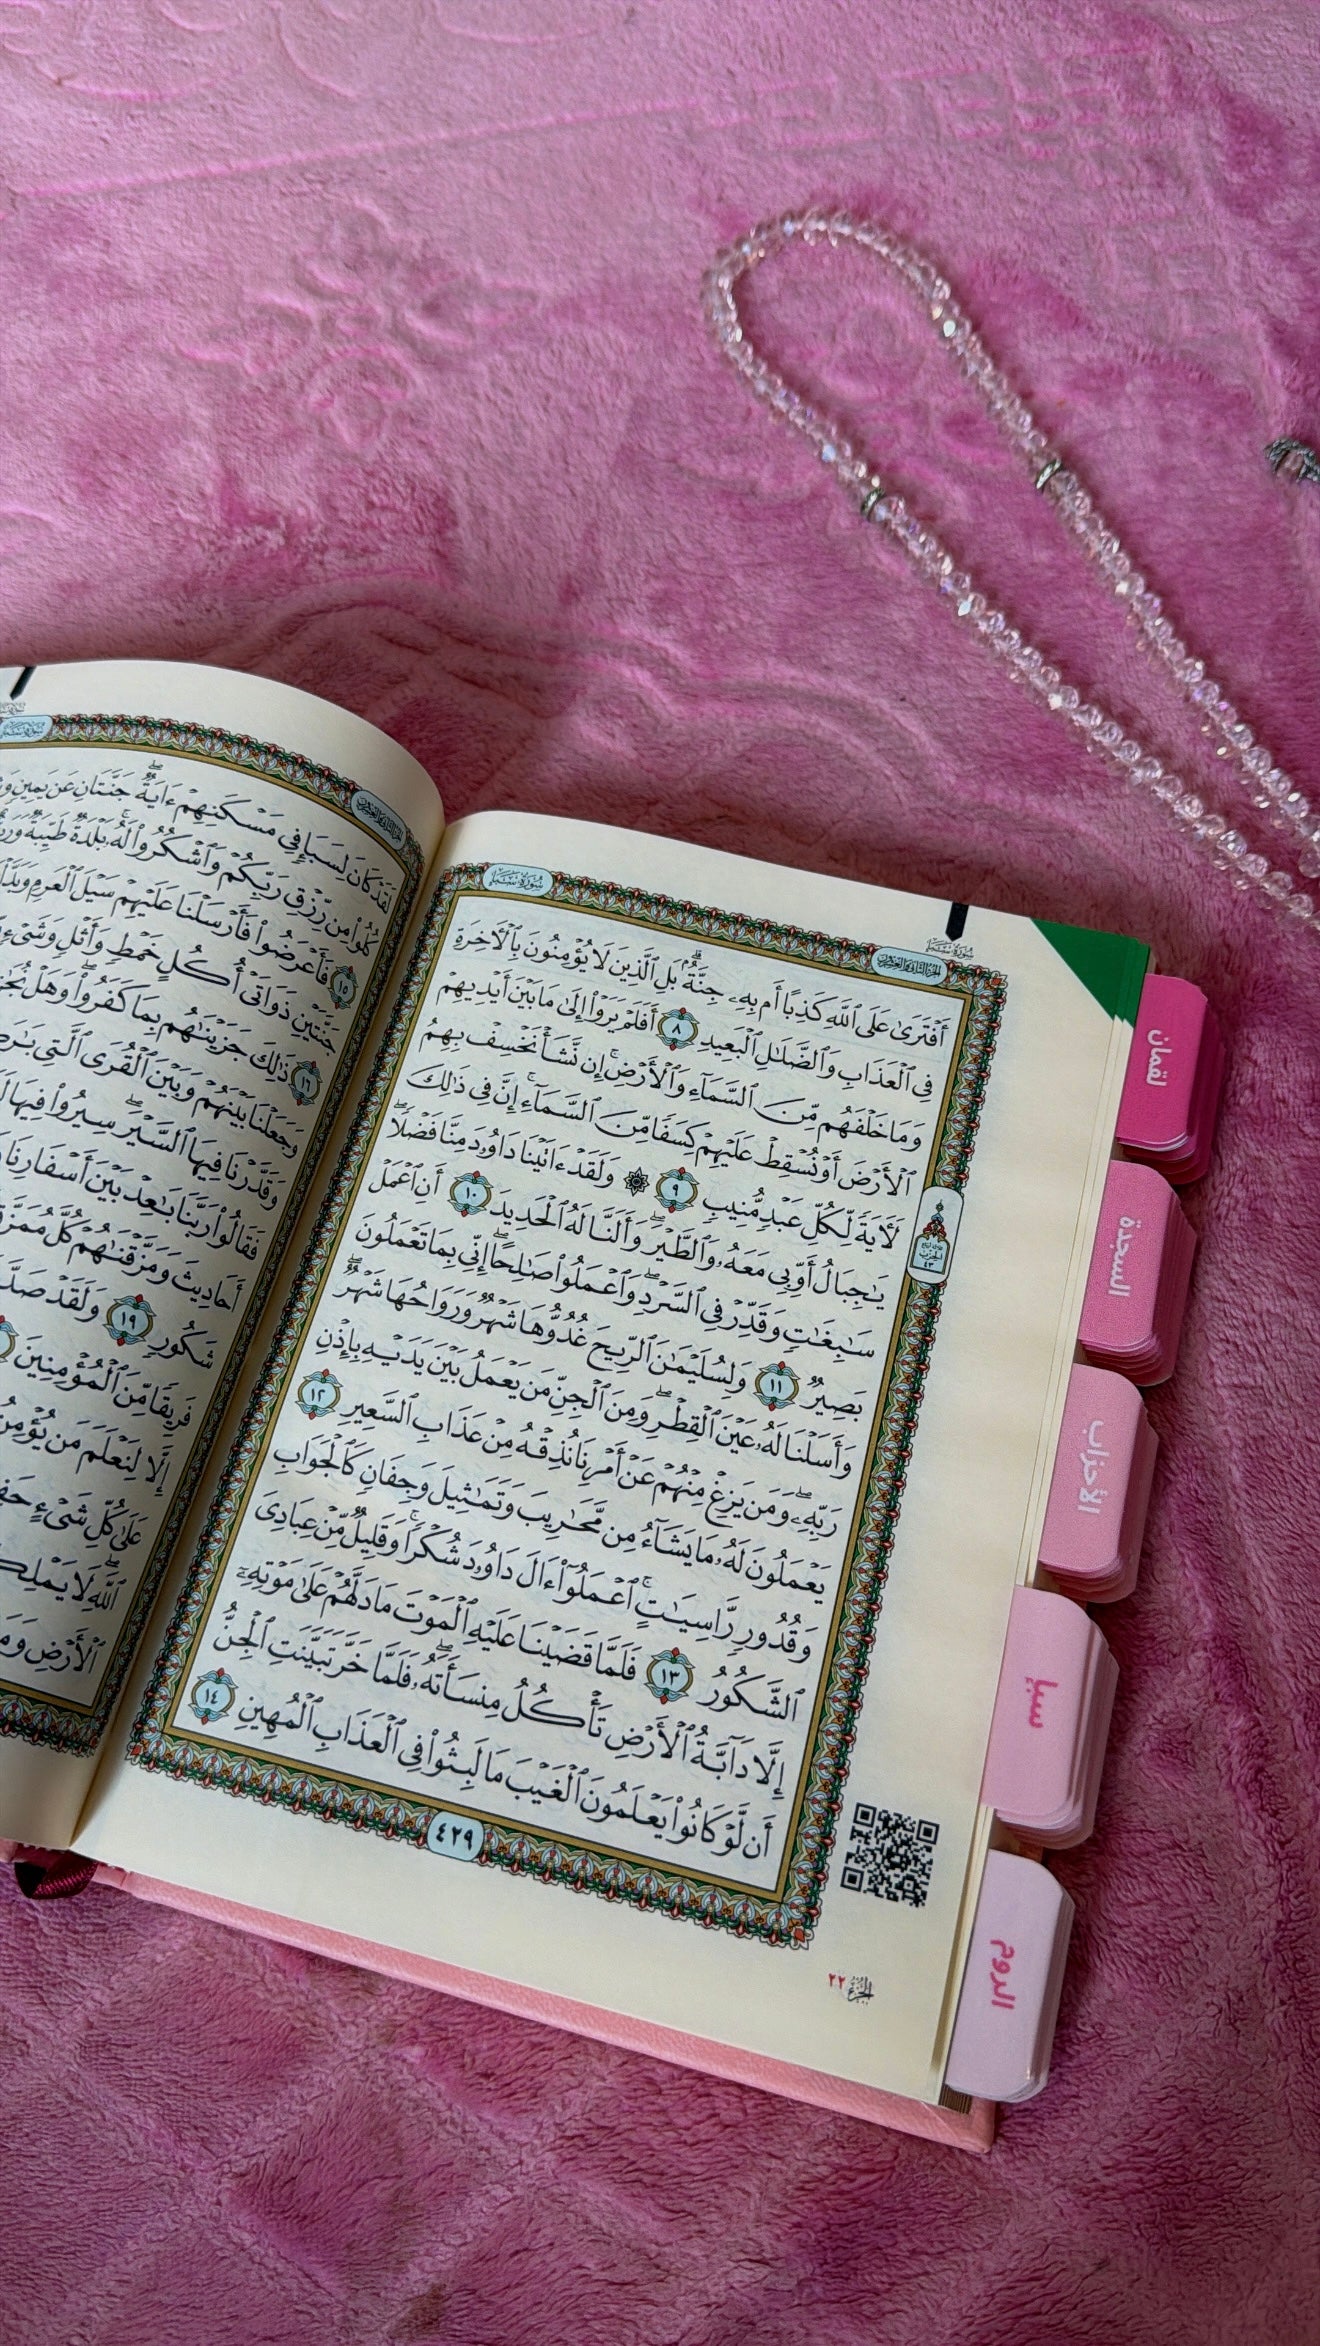 سُورَةُ سَبَإٍ
الجزء الثاني والعشرون
سُورَةُ سَبَإٍ
أَفْتَرَىٰ عَلَى ٱللَّهِ كَذِبًا أَم بِهِۦ جِنَّةٌۢ ۗ بَلِ ٱلَّذِينَ لَا يُؤْمِنُونَ بِٱلْأَخِرَةِ
فِى ٱلْعَذَابِ وَٱلضَّلَٰلِ ٱلْبَعِيدِ ٨ أَفَلَمْ يَرَوْا۟ إِلَىٰ مَا بَيْنَ أَيْدِيهِمْ
وَمَا خَلْفَهُم مِّنَ ٱلسَّمَآءِ وَٱلْأَرْضِ ۚ إِن نَّشَأْ نَخْسِفْ بِهِمُ
ٱلْأَرْضَ أَوْ نُسْقِطْ عَلَيْهِمْ كِسَفًا مِّنَ ٱلسَّمَآءِ ۚ إِنَّ فِى ذَٰلِكَ
لَءَايَةً لِّكُلِّ عَبْدٍ مُّنِيبٍ ٩ ۞ وَلَقَدْ ءَاتَيْنَا دَاوُۥدَ مِنَّا فَضْلًا ۖ
يَٰجِبَالُ أَوِّبِى مَعَهُۥ وَٱلطَّيْرَ ۖ وَأَلَنَّا لَهُ ٱلْحَدِيدَ ١٠ أَنِ ٱعْمَلْ
سَٰبِغَٰتٍ وَقَدِّرْ فِى ٱلسَّرْدِ ۖ وَٱعْمَلُوا۟ صَٰلِحًا ۖ إِنِّى بِمَا تَعْمَلُونَ
بَصِيرٌ ١١ وَلِسُلَيْمَٰنَ ٱلرِّيحَ غُدُوُّهَا شَهْرٌ وَرَوَاحُهَا شَهْرٌ ۖ
وَأَسَلْنَا لَهُۥ عَيْنَ ٱلْقِطْرِ ۖ وَمِنَ ٱلْجِنِّ مَن يَعْمَلُ بَيْنَ يَدَيْهِ بِإِذْنِ
رَبِّهِۦ ۖ وَمَن يَزِغْ مِنْهُمْ عَنْ أَمْرِنَا نُذِقْهُ مِنْ عَذَابِ ٱلسَّعِيرِ ١٢
يَعْمَلُونَ لَهُۥ مَا يَشَآءُ مِن مَّحَٰرِيبَ وَتَمَٰثِيلَ وَجِفَانٍ كَٱلْجَوَابِ
وَقُدُورٍ رَّاسِيَٰتٍ ۚ ٱعْمَلُوٓا۟ ءَالَ دَاوُۥدَ شُكْرًا ۚ وَقَلِيلٌ مِّنْ عِبَادِىَ
ٱلشَّكُورُ ١٣ فَلَمَّا قَضَيْنَا عَلَيْهِ ٱلْمَوْتَ مَا دَلَّهُمْ عَلَىٰ مَوْتِهِۦٓ
إِلَّا دَآبَّةُ ٱلْأَرْضِ تَأْكُلُ مِنسَأَتَهُۥ ۖ فَلَمَّا خَرَّ تَبَيَّنَتِ ٱلْجِنُّ
أَن لَّوْ كَانُوا۟ يَعْلَمُونَ ٱلْغَيْبَ مَا لَبِثُوا۟ فِى ٱلْعَذَابِ ٱلْمُهِينِ ١٤
٤٢٩
الجزء ٢٢
لقمان
السجدة
الأحزاب
سبإ
الروم
لَقَدْ كَانَ لِسَبَإٍ فِى مَسْكَنِهِمْ ءَايَةٌ ۖ جَنَّتَانِ عَن يَمِينٍ
كُلُوا۟ مِن رِّزْقِ رَبِّكُمْ وَٱشْكُرُوا۟ لَهُۥ ۚ بَلْدَةٌ طَيِّبَةٌ
١٥ فَأَعْرَضُوا۟ فَأَرْسَلْنَا عَلَيْهِمْ سَيْلَ ٱلْعَرِمِ
جَنَّتَيْنِ ذَوَاتَىْ أُكُلٍ خَمْطٍ وَأَثْلٍ وَشَىْءٍ
١٦ ذَٰلِكَ جَزَيْنَٰهُم بِمَا كَفَرُوا۟ ۖ وَهَلْ
وَجَعَلْنَا بَيْنَهُمْ وَبَيْنَ ٱلْقُرَى ٱلَّتِى
وَقَدَّرْنَا فِيهَا ٱلسَّيْرَ ۖ سِيرُوا۟ فِيهَا
فَقَالُوا۟ رَبَّنَا بَٰعِدْ بَيْنَ أَسْفَارِنَا
أَحَادِيثَ وَمَزَّقْنَٰهُمْ كُلَّ
شَكُورٍ ١٩ وَلَقَدْ
فَرِيقًا مِّنَ ٱلْمُؤْمِنِينَ
إِلَّا لِنَعْلَمَ مَن
عَلَىٰ كُلِّ شَىْءٍ
ٱللَّهِ ۖ لَا
ٱلْأَرْضِ